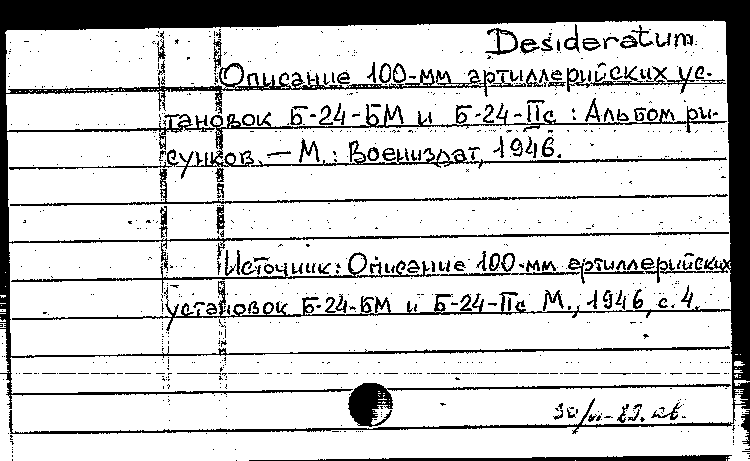 Desideratum
Описание 100-мм артиллерийских ус-
тановок Б-24-БМ и Б-24-IIс : Альбом ри-
сунков. — М.: Воениздат, 1946.
Источник: Описание 100-мм артиллерийских
установок Б-24-БМ и Б-24-IIс М., 1946, с. 4.